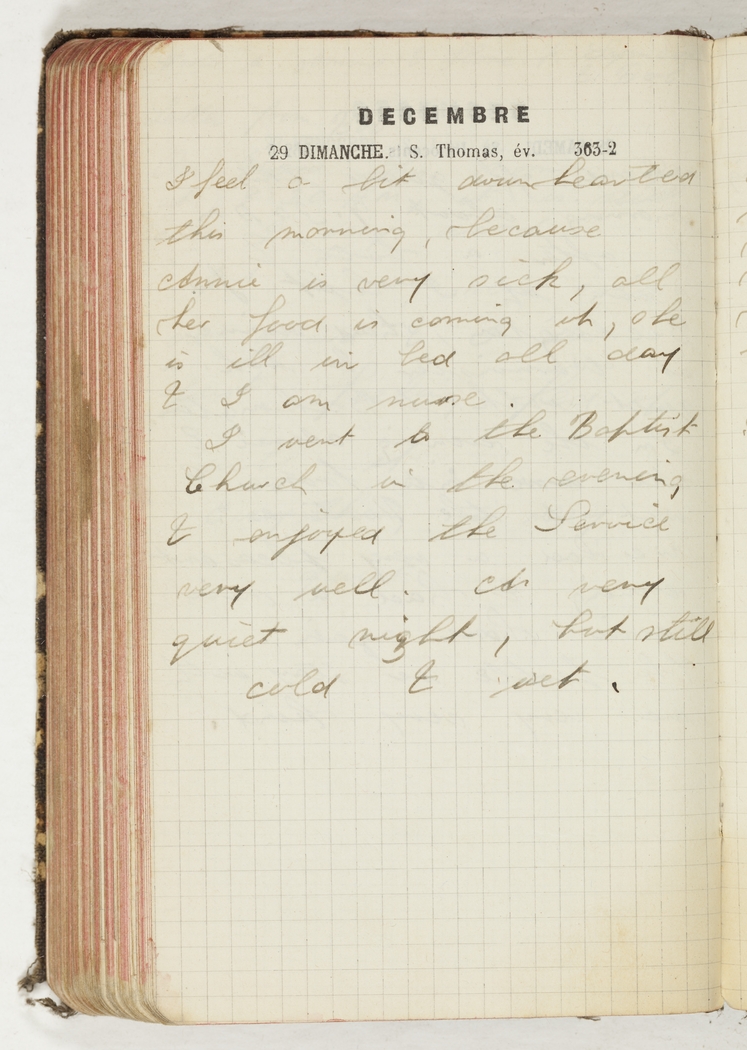 DECEMBRE
29 DIMANCHE. S. Thomas, év. 363-2
I feel a bit downhearted
this morning, because
Annie is very sick, all
her food is coming up, she
is ill in bed all day
& I am nurse.
I went to the Baptist
Church in the evening
& enjoyed the Service
very well. A very
quiet night, but still
cold & wet.